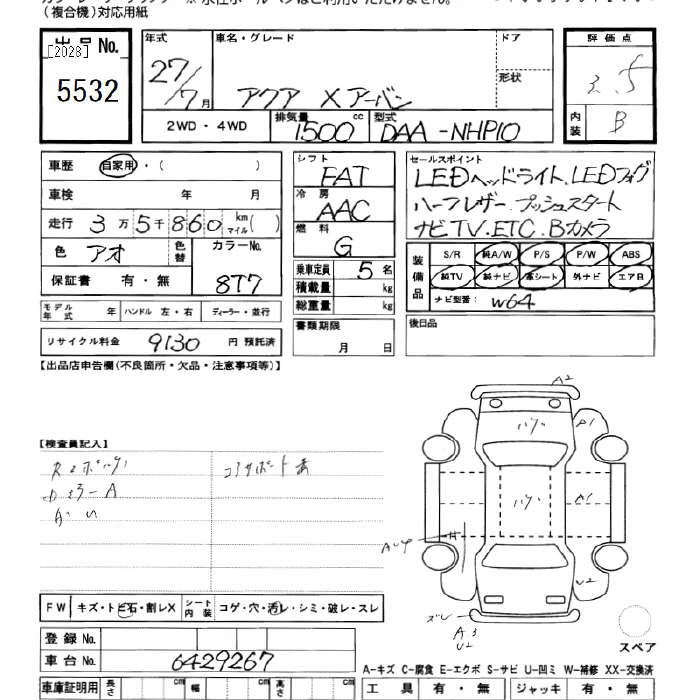 (複合機)対応用紙
出品No.
[2028]
5532
年式
27/7月
車名・グレード
アクア Xアーバン
ドア
形状
評価点
3.5
内装
B
2WD・4WD
排気量
1500 cc
型式
DAA-NHP10
車歴
自家用・( )
車検 年 月
走行 3万5千860 km マイル( )
色 アオ
色替
カラーNo.
8T7
保証書 有・無
モデル年式 年
ハンドル 左・右
ディーラー・並行
リサイクル料金 9130 円 預託済
シフト
FAT
冷房
AAC
燃料
G
乗車定員 5 名
積載量 kg
総重量 kg
書類期限
月 日
セールスポイント
LEDヘッドライト.LEDフォグ
ハーフレザー.プッシュスタート
ナビTV.ETC.Bカメラ
装備品
S/R 純A/W P/S P/W ABS
純TV 純ナビ 革シート 外ナビ エアB
ナビ型番: W64
後日品
【出品店申告欄(不良箇所・欠品・注意事項等)】
【検査員記入】
A2
A1
A1
U2
ズレ
A3
U2
スペア
FW
キズ・トビ石・割レX
シート内装
コゲ・穴・汚レ・シミ・破レ・スレ
登録No.
車台No.
6429267
A-キズ C-腐食 E-エクボ S-サビ U-凹ミ W-補修 XX-交換済
車庫証明用
長さ cm
幅 cm
高さ cm
工具 有・無
ジャッキ 有・無